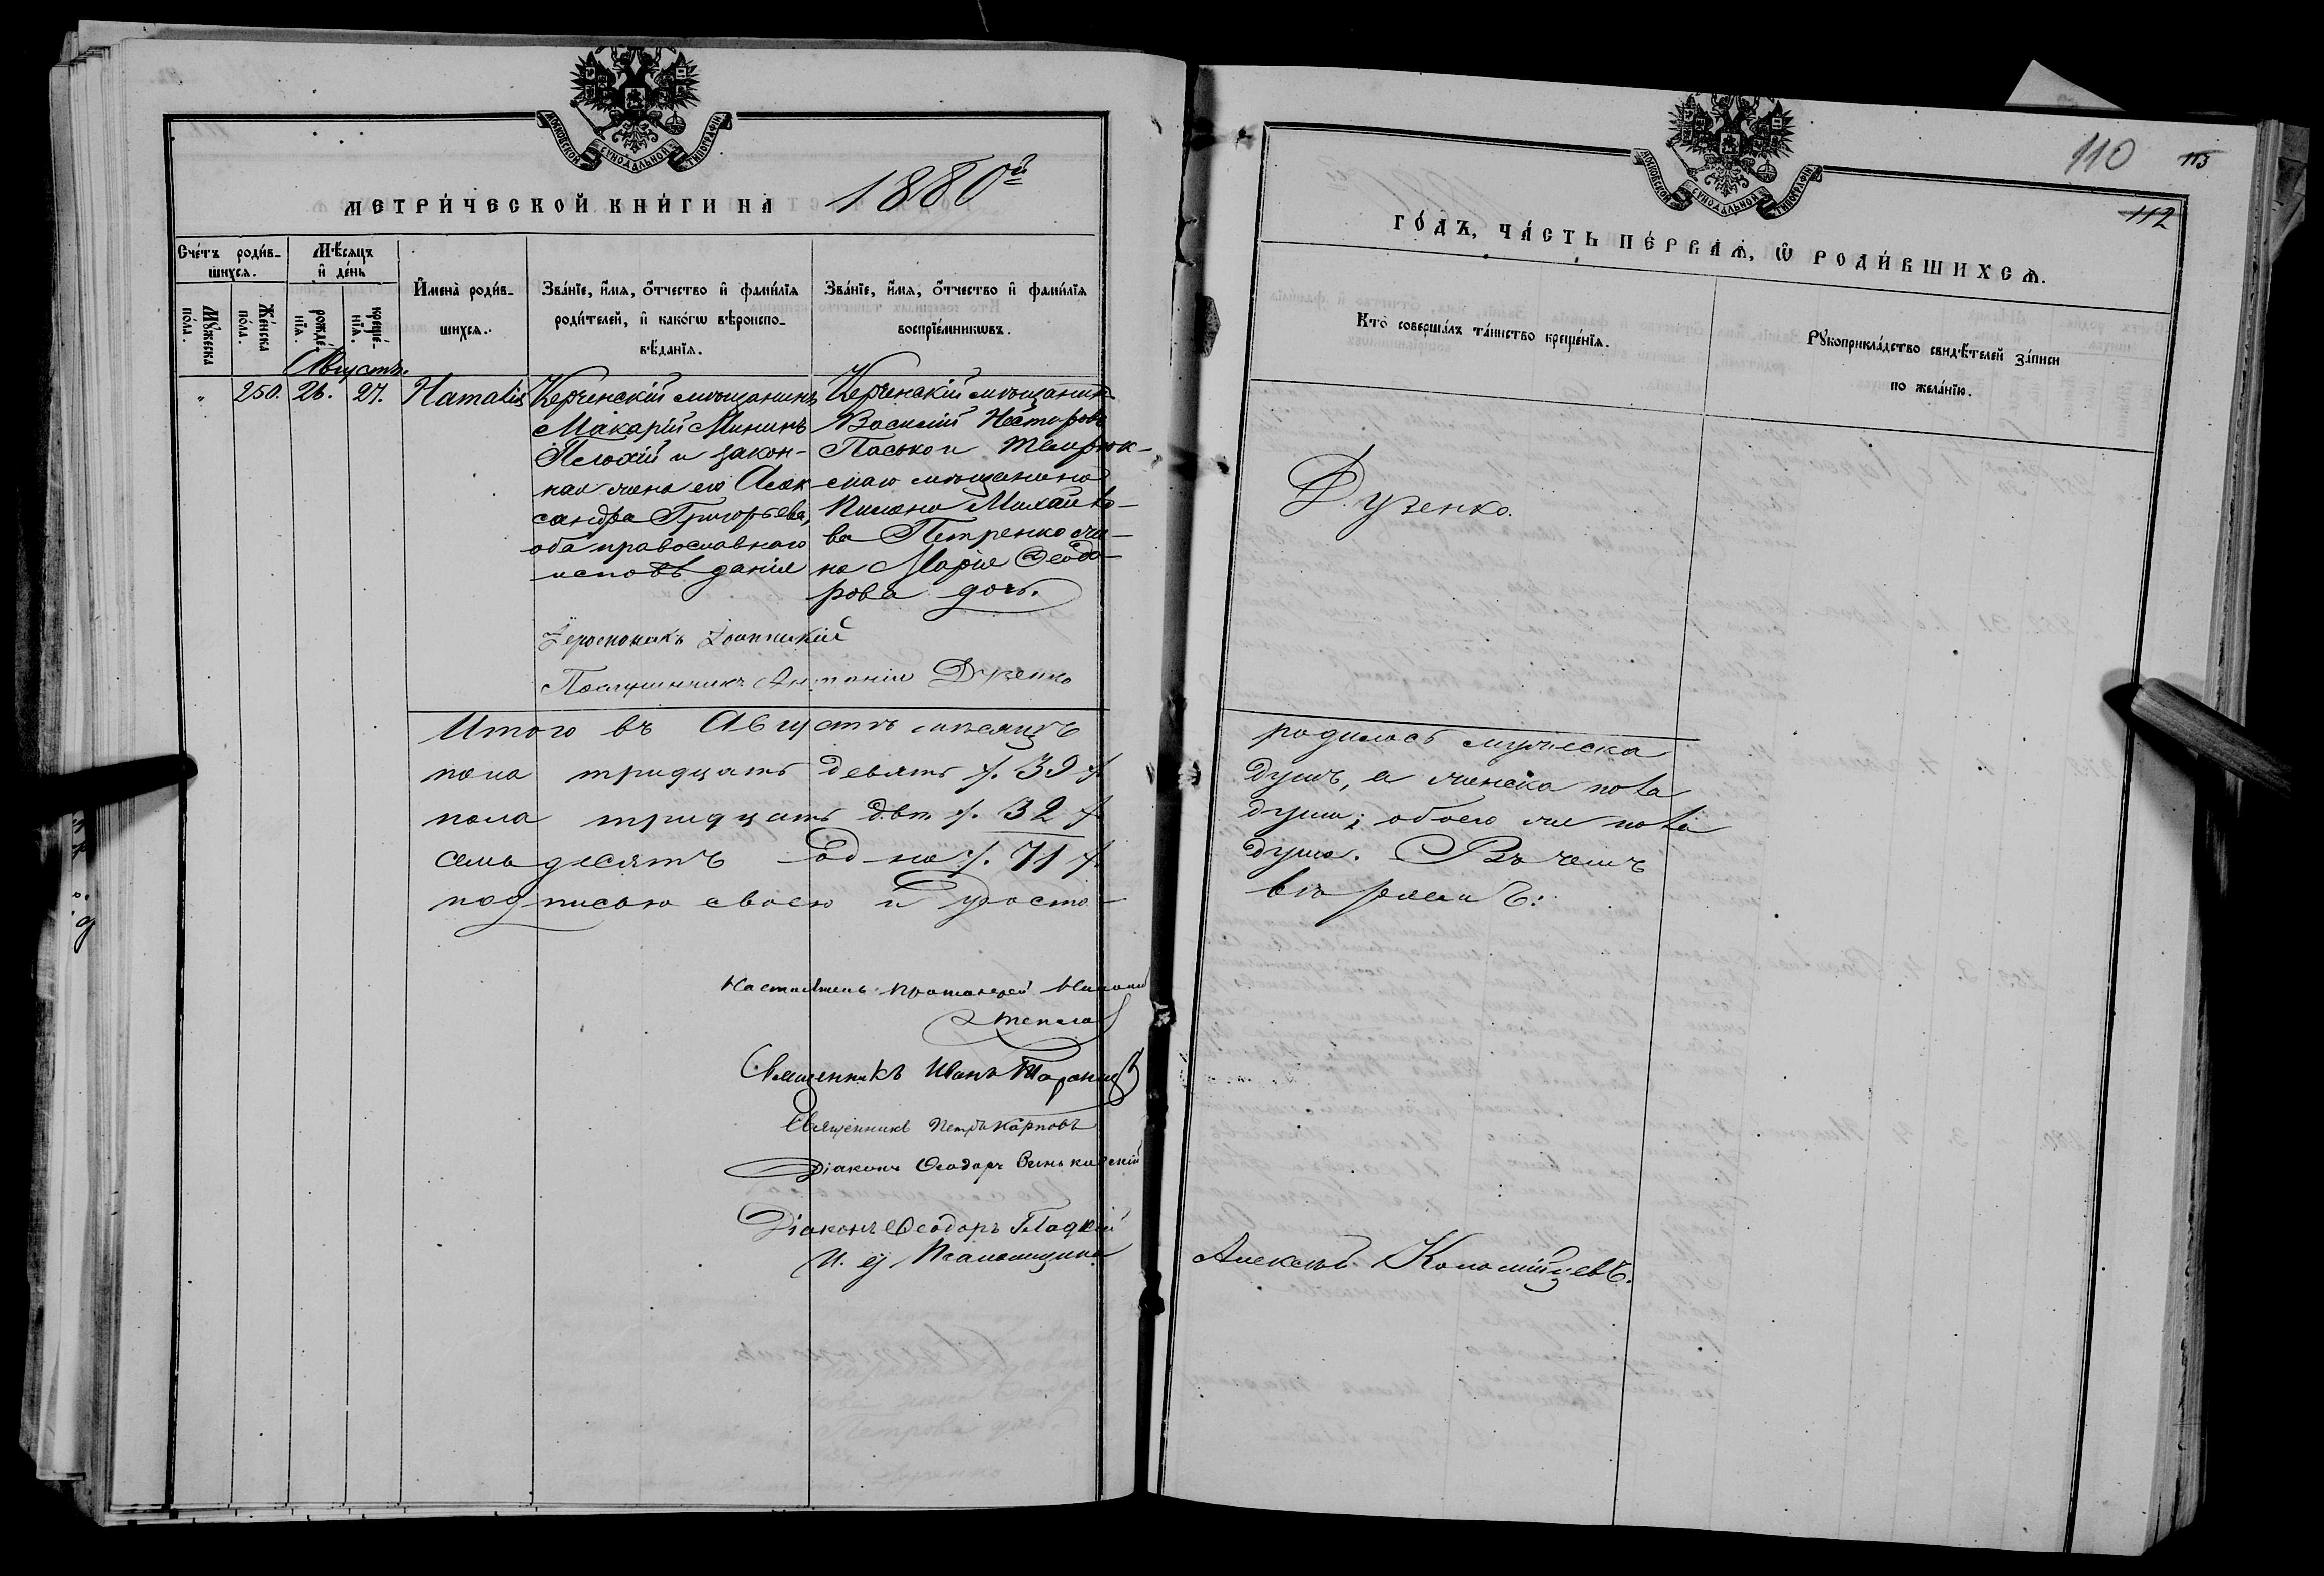 МОСКОВСКОЙ СѴНОДАЛЬНОЙ ТИПОГРАФІИ
МЕТРИ́ЧЕСКОЙ КНИ́ГИ НА 1880й
Сче́тъ роди́в-
шихсѧ.
Мѣ́сѧцъ
и҆ де́нь
Мꙋ́жеска
по́ла.
Же́нска
по́ла.
рожде́-
нїѧ.
креще́-
нїѧ.
И҆мена̀ роди́в-
шихсѧ.
Зва́нїе, и҆́мѧ, ѻ҆́тчество и҆ фами́лїѧ
роди́телей, и҆ како́гѡ вѣроиспо-
вѣ́данїѧ.
Зва́нїе, и҆́мѧ, ѻ҆́тчество и҆ фами́лїѧ
воспрїе́мникѡвъ.
Августъ.
" 250. 26. 27. Наталія
Керченскій мѣщанинъ
Макарій Мининъ
Плохій и закон-
ная жена его Алек-
сандра Григорьева,
оба православнаго
исповѣданія
Керченскій мѣщанинъ
Василій Несторовъ
Пасько и Темрюк-
скаго мѣщанина
Михайло-
ва Петренко же-
на Марія Ѳеодо-
рова дочь.
Іеромонахъ Іоанникій
Послушникъ Антоній Дузенко
Итого въ Августѣ мѣсяцѣ
пола тридцать девять /. 39 /.
пола тридцать двѣ /. 32 /.
семьдесятъ одна /. 71 /.
подписью своею и удосто-
Настоятель протоіерей
Священникъ Иванъ
Священникъ Петръ Карповъ
Діаконъ Ѳеодоръ
Діаконъ Ѳеодоръ Гладкій
И. д. Псаломщика
110 113
112
МОСКОВСКОЙ СѴНОДАЛЬНОЙ ТИПОГРАФІИ
ГО́ДЪ, ЧА́СТЬ ПЕ́РВАѦ, Ѡ҆ РОДИ́ВШИХСѦ.
Кто̀ соверша́лъ та́инство креще́нїѧ.
Рꙋкоприкла́дство свидѣ́телей за́писи
по жела́нїю.
Дузенко.
родилось мужеска
душъ, а женска пола
душъ; обоего же пола
душа. Въ чемъ
вѣряемъ:
Алексѣй Коломійцевъ.